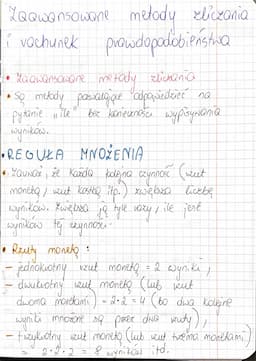 Zaawansowane metody zliczania
i rachunek prawdopodobieństwa
• Zaawansowane metody zliczania
• Są metody pozwalające odpowiedzieć na
pytanie „ile” bez konieczności wypisywania
wyników.
• REGUŁA MNOŻENIA
• Zauważ, że każda kolejna czynność (rzut
monetą, rzut kostką itp.) zwiększa liczbę
wyników. Zwiększa ją tyle razy, ile jest
wyników tej czynności.
• Rzuty monetą :
– jednokrotny rzut monetą = 2 wyniki,
– dwukrotny rzut monetą (lub rzut
dwoma monetami) = 2·2 = 4 (bo dwa kolejne
wyniki mnożone są przez dwa rzuty),
– trzykrotny rzut monetą (lub rzut trzema monetami)
= 2·2·2 = 8 wyników itd.